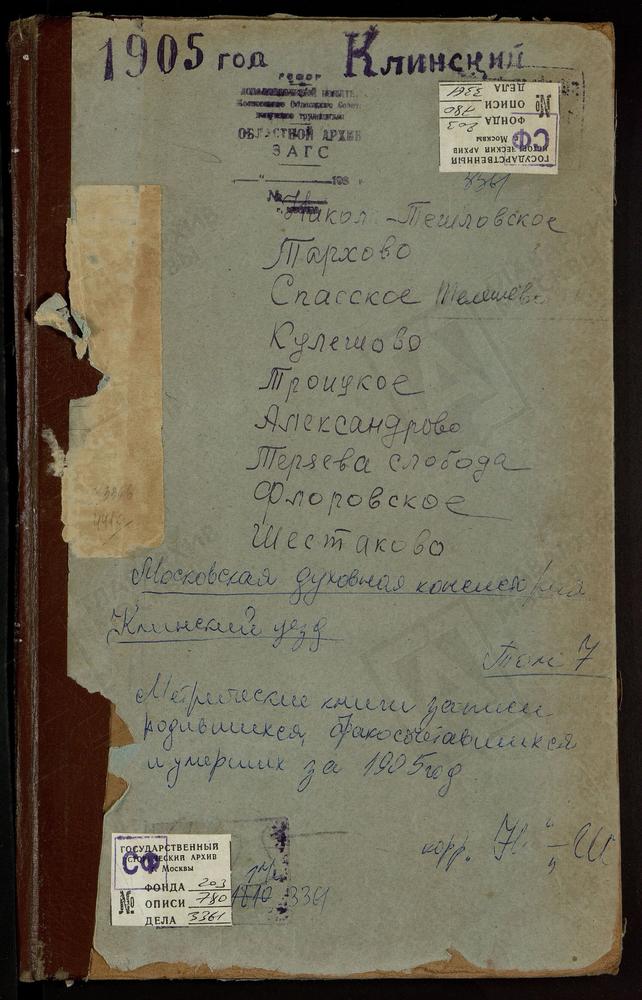 1905 год Клинский
РСФСР
ОБЛАСТНОЙ АРХИВ
ЗАГС
198 г
№
ГОСУДАРСТВЕННЫЙ
ИСТОРИЧЕСКИЙ АРХИВ
г. Москвы
СФ
ФОНДА 203
№ ОПИСИ 780
ДЕЛА 3361
3361
Никол-Тешиловское
Тархово
Спасское Телешово
Кулешово
Троицкое
Александрово
Теряева слобода
Флоровское
Шестаково
Московская духовная консистория
Клинский уезд
Том 7
Метрические книги записи
родившихся, бракосочетавшихся
и умерших за 1905 год
корр.
ГОСУДАРСТВЕННЫЙ
ИСТОРИЧЕСКИЙ АРХИВ
г. Москвы
СФ
ФОНДА 203
№ ОПИСИ 780
ДЕЛА 3361
3361